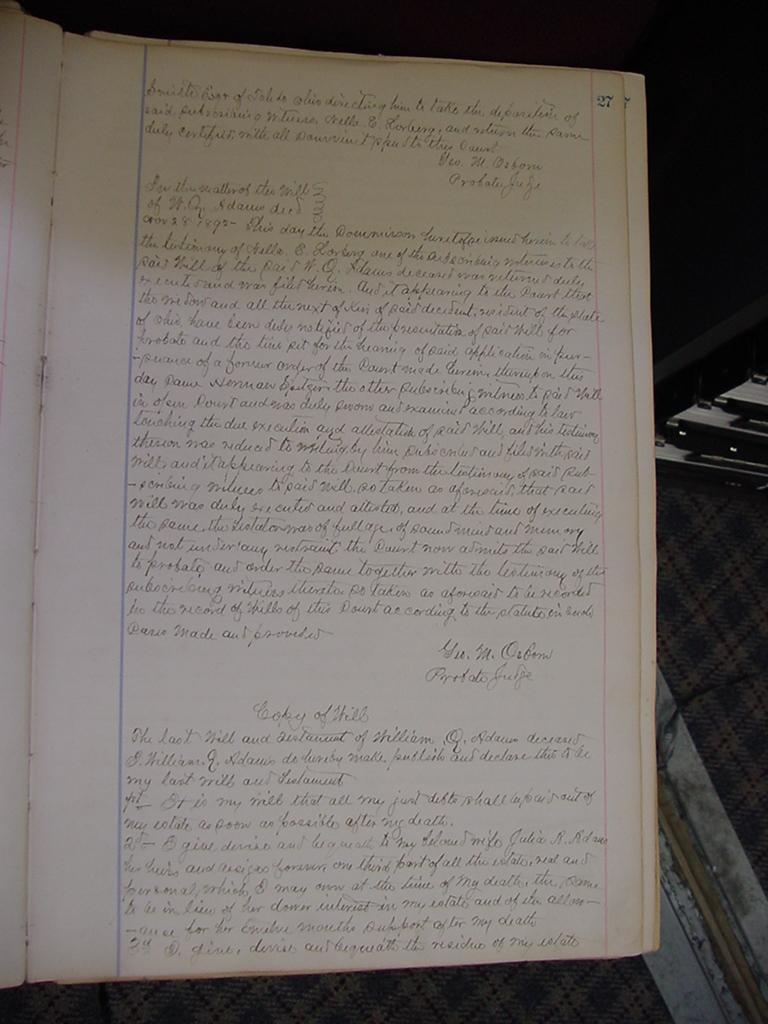 27
Smith Esqr of Toledo Ohio directing him to take the deposition of
said subscribing witness Nella E. Lorberg, and return the same
duly certified with all convenient speed to this Court
Geo. M. Osborn
Probate Judge
In the matter of the Will
of W. Q. Adams decd
Nov 28 1892 - This day the Commission heretofore issued herein to take
the testimony of Nella E. Lorberg one of the subscribing witnesses to the
said Will of the said W. Q. Adams deceased was returned duly
executed and was filed herein. And it appearing to the Court that
the widow and all the next of Kin of said decedent, resident of the state
of Ohio, have been duly notified of the presentation of said Will for
probate and the time set for the hearing of said application in pur-
-suance of a former order of the Court made herein, thereupon this
day Came Herman the other subscribing witness to said Will
in open Court and was duly sworn and examined according to law
touching the due execution and attestation of said Will, and his testimony
thereon was reduced to writing, by him subscribed and filed with said
will, and it appearing to the Court from the testimony of said sub-
-scribing witnesses to said Will, so taken as aforesaid, that said
will was duly executed and attested, and at the time of executing
the same, the testator was of full age, of sound mind and memory
and not under any restraint the Court now admits the said Will
to probate, and order the same together with the testimony of the
subscribing witness thereto so taken as aforesaid to be recorded
in the record of Wills of this Court according to the statute in such
Cases Made and provided
Geo. M. Osborn
Probate Judge
Copy of Will
The last Will and testament of William Q. Adams deceased
I. William. Q. Adams do hereby make, publish and declare this to be
my last will and testament
1st - It is my will that all my just debts shall be paid out of
my estate as soon as possible after my death.
2d - I give devise and bequeath to my beloved wife Julia R. Adams
her heirs and assigns forever, one third part of all the estate, real and
personal, which I may own at the time of My death, the same
to be in lieu of her dower interest in my estate and of the allow-
-ance for her twelve months support after my death
3d I. give, devise and bequeath the residue of my estate